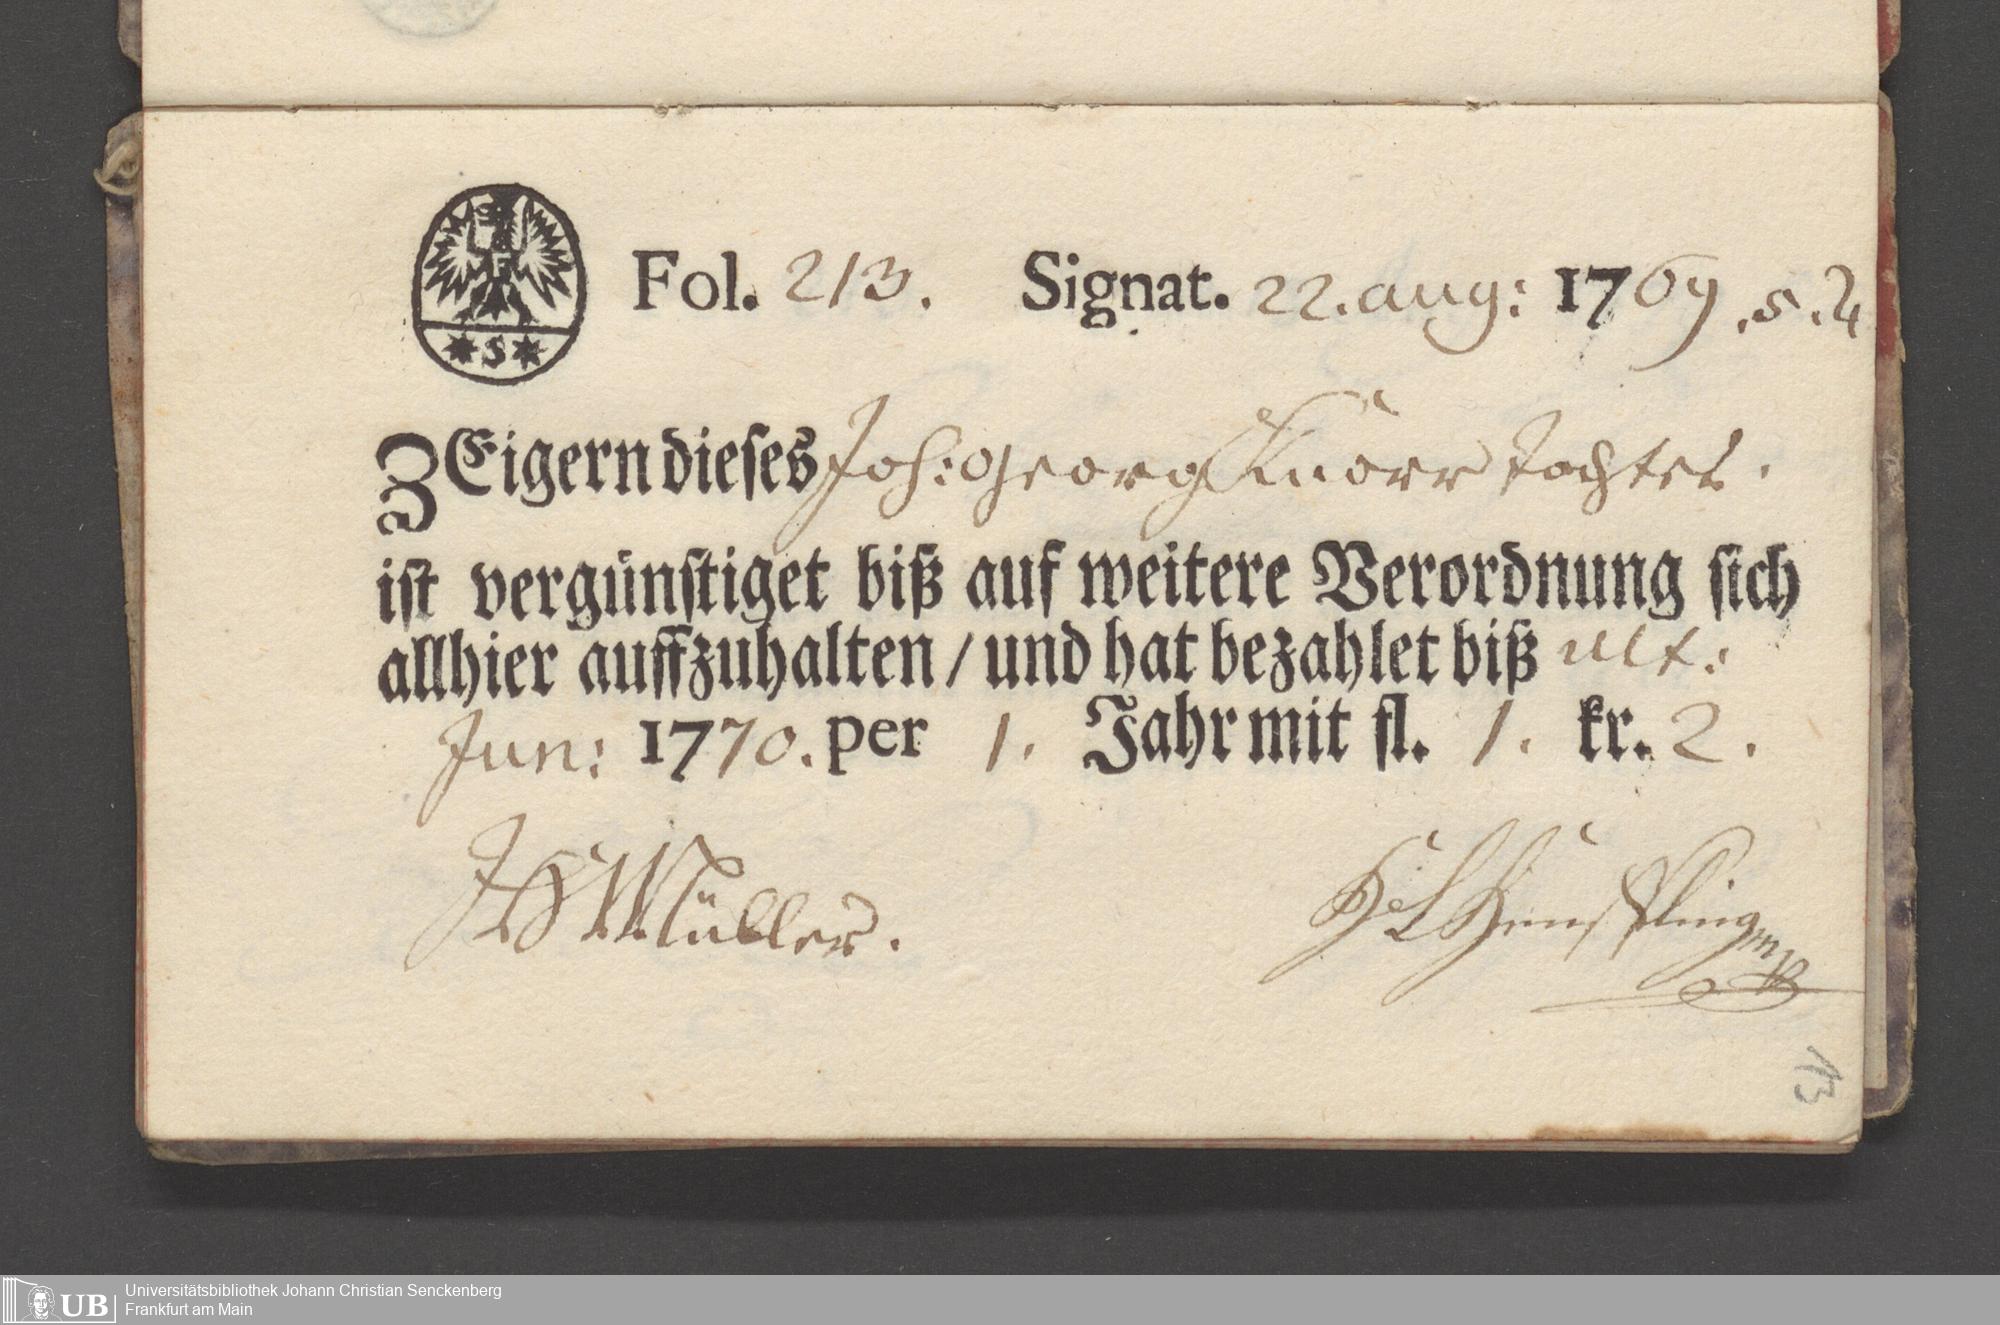 Fol. 213. Signat. 22. aug: 1769 .s.
* S *
ZEigern dieses Joh: Georg Knörr Tochter.
ist vergünstiget biß auf weitere Verordnung sich
allhier auffzuhalten / und hat bezahlet biß ult:
Jun: 1770. per 1. Jahr mit fl. 1. kr. 2.
Müller.
13
UB
Universitätsbibliothek Johann Christian Senckenberg
Frankfurt am Main